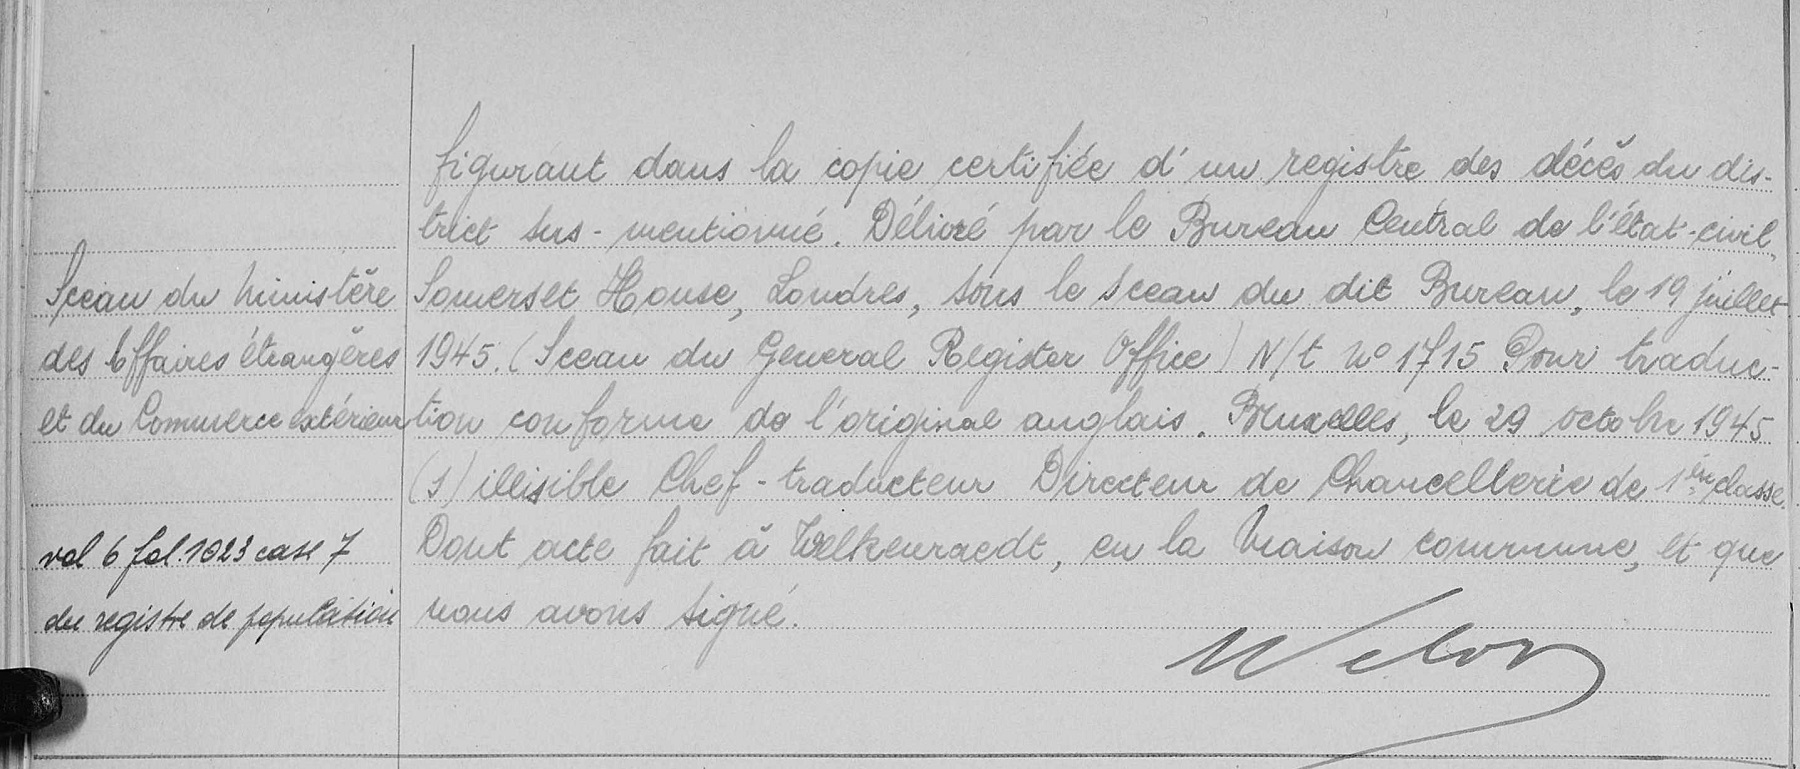 figurant dans la copie certifiée d'un registre des décès du dis-
trict sus-mentionné. Délivré par le Bureau Central de l'état-civil,
Somerset House, Londres, sous le sceau du dit Bureau, le 19 juillet
1945. (Sceau du General Register Office) N/t No 1715 Pour traduc-
tion conforme de l'original anglais. Bruxelles, le 29 octobre 1945
(s) illisible Chef-traducteur Directeur de Chancellerie de 1ère classe.
Dont acte fait à Welkenraedt, en la Maison commune, et que
nous avons signé.
Sceau du Ministère
des Affaires étrangères
et du Commerce extérieur
vol 6 fol. 1023 case 7
du registre de population